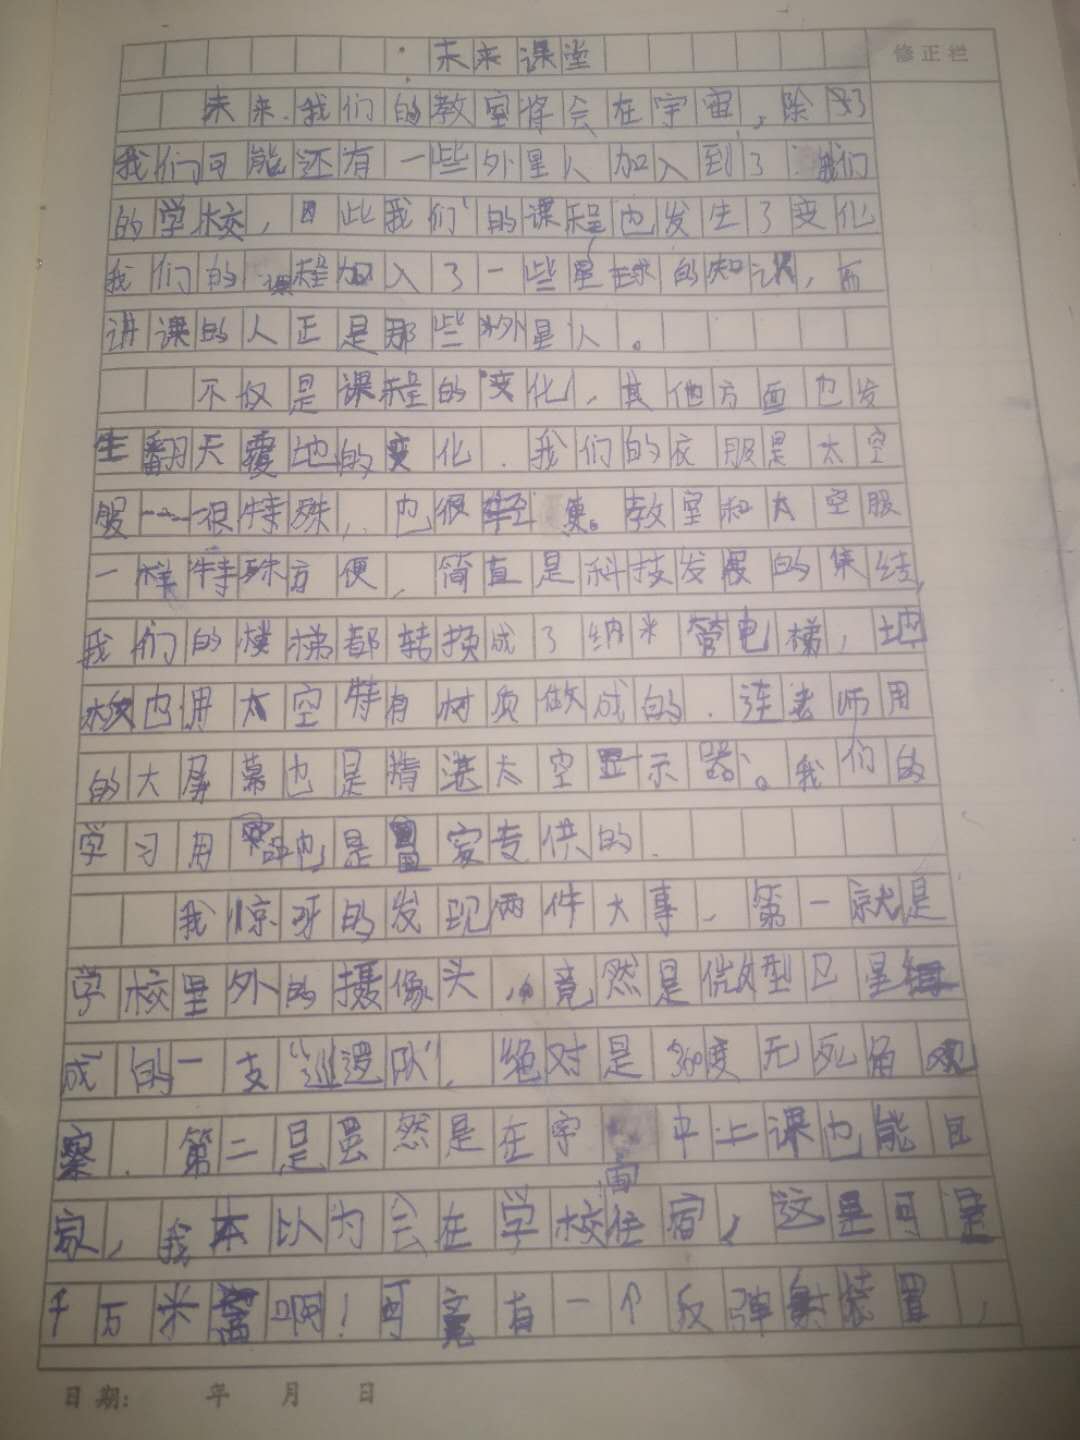 未来课堂
修正栏
未来.我们的教室将会在宇宙,除了
我们可能还有一些外星人加入到了我们
的学校,因此我们的课程也发生了变化
我们的课程加入了一些星球的知识,而
讲课的人正是那些外星人。
不仅是课程的变化,其他方面也发
生翻天覆地的变化.我们的衣服是太空
服——很特殊,也很轻便。教室和太空服
一样特殊方便,简直是科技发展的集结,
我们的楼梯都转换成了纳米管电梯,地
板也用太空特有材质做成的.连老师用
的大屏幕也是指太空显示器。我们的
学习用品也是皇家专供的.
我惊讶的发现两件大事,第一就是
学校里外的摄像头,竟然是微型卫星组
成的一支“巡逻队”,绝对是360度无死角观
察.第二是虽然是在宇宙中上课也能回
家,我本以为会在学校住宿,这里可是
千万米高啊!可竟有一个反弹射装置,
日期: 年 月 日